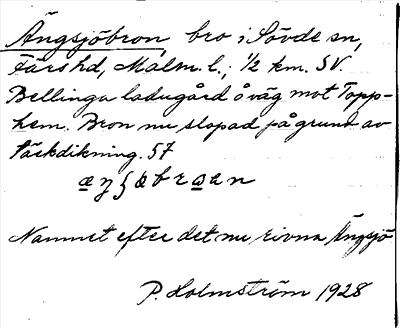 Ängsjöbron, bro i Sövde sn,
Färs hd, Malm. l.; 1/2 km. SV.
Bellinga ladugård å väg mot Topp-
hem. Bron nu slopad på grund av
täckdikning. 57
Namnet efter det nu rivna Ängsjö
P. Holmström 1928